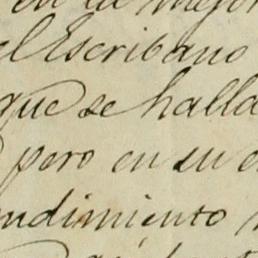 en la mejor
el Escribano
que se halla
pero en su
ndimiento